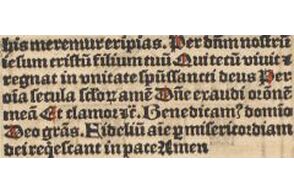 his meremur eripias. Per dn̄m nostrū
iesum cristū filium tuū Qui tecū viuit ⁊
regnat in vnitate spūssancti deus Per
oīa secula sclōꝝ amē Dn̄e exaudi orōnem
meā Et clamor ⁊c̄. Benedicam⁹ domino
Deo grās. Fideliū aīe ꝑ misericordiam
dei reqͥescant in pace Amen